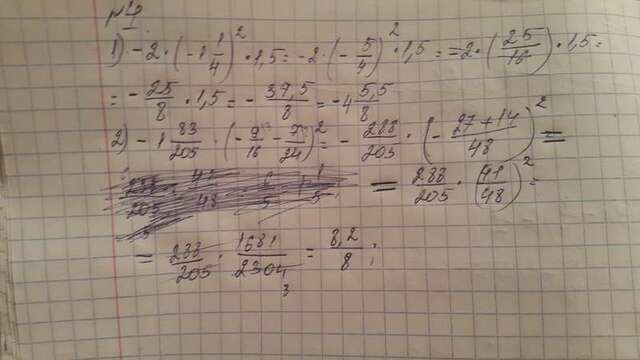 №4.
1) -2·(-1 1/4)²·1,5 = -2·(-5/4)²·1,5 = -2·(25/16)·1,5 =
= -25/8·1,5 = -37,5/8 = -4 5,5/8
2) -1 83/205·(-9/16-7/24)² = -288/205·(-27+14/48)² =
= 288/205·(41/48)² =
= 288/205·1681/2304 = 8,2/8;
3